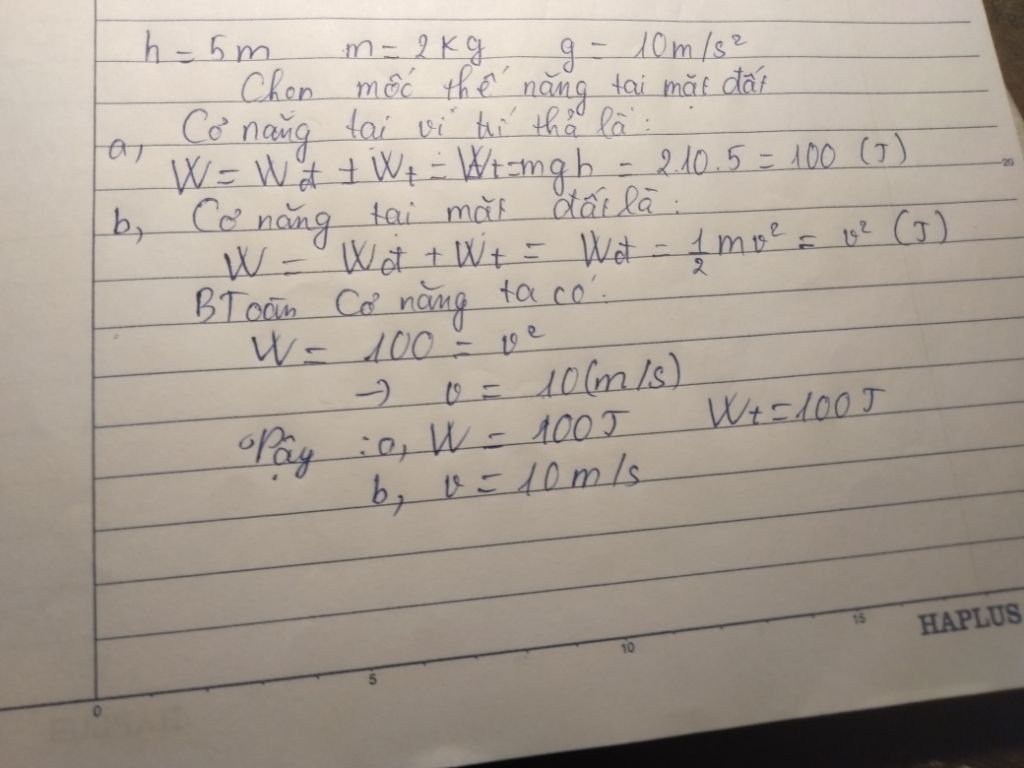 h = 5m m = 2kg g = 10m/s²
Chọn mốc thế năng tại mặt đất
a, Cơ năng tại vị trí thả là:
W = Wđ + Wt = Wt = mgh = 2.10.5 = 100 (J)
20
b, Cơ năng tại mặt đất là:
W = Wđ + Wt = Wđ = 1/2 mv² = v² (J)
BToàn Cơ năng ta có:
W = 100 = v²
→ v = 10(m/s)
Vậy : a, W = 100J Wt = 100J
b, v = 10m/s
0 5 10 15 HAPLUS